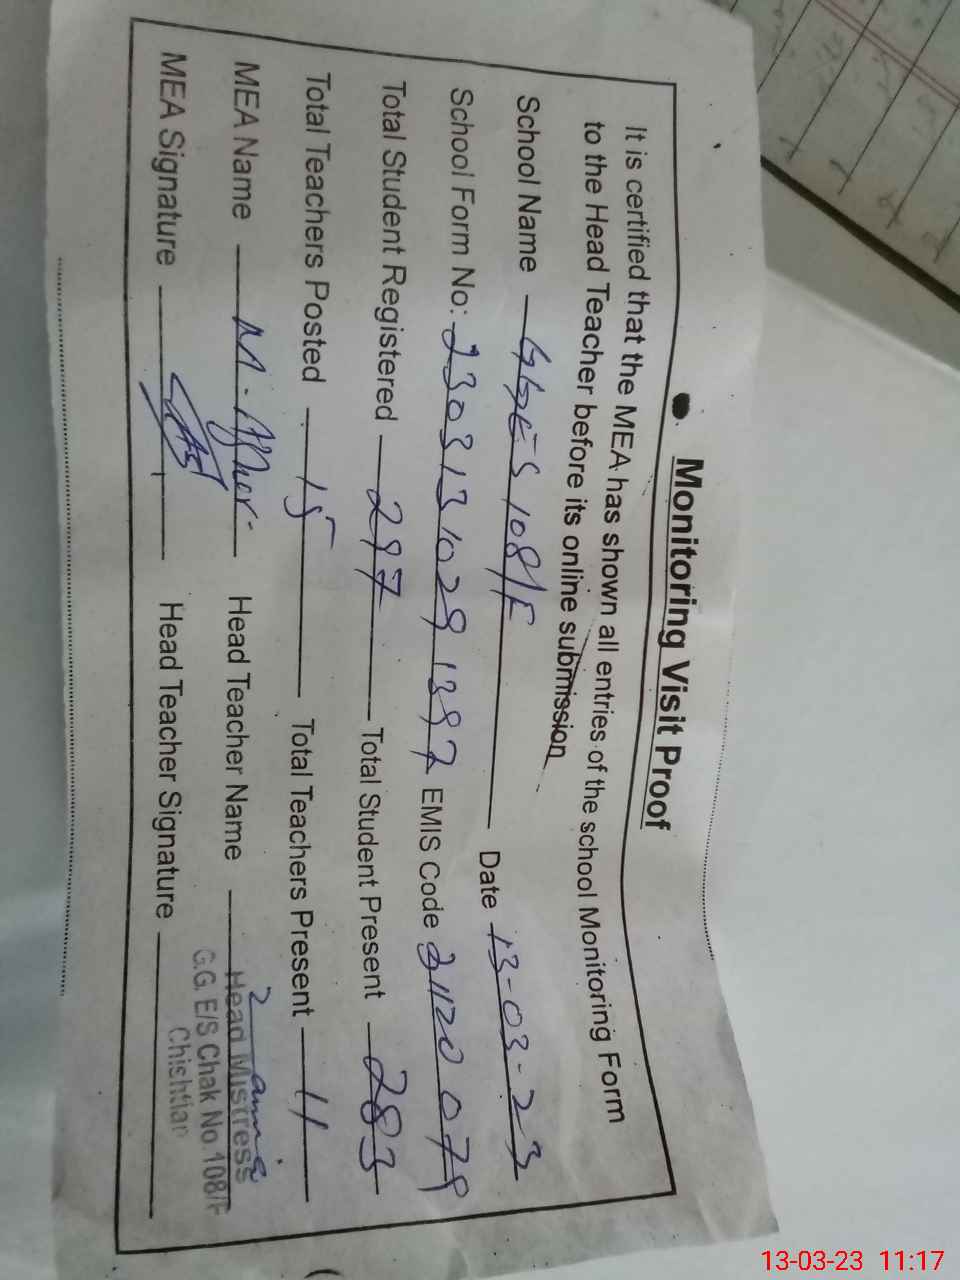 Monitoring Visit Proof
It is certified that the MEA has shown all entries of the school Monitoring Form
to the Head Teacher before its online submission
School Name GGES 108/F Date 13-03-23
School Form No: 23031310291397 EMIS Code 31120078
Total Student Registered 297 Total Student Present 283
Total Teachers Posted 15 Total Teachers Present 11
MEA Name M. Head Teacher Name
Head Mistress
MEA Signature Head Teacher Signature
G.G. E/S Chak No.108/F
Chishtian
13-03-23 11:17